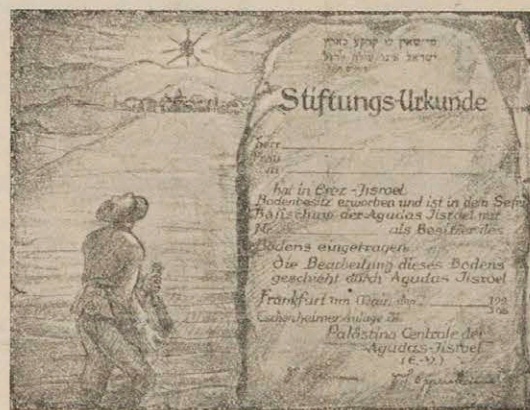 Stiftungs-Urkunde
Herr
Frau
in
hat in Erez-Jisroel
Bodenbesitz erworben und ist in dem Sefer
der Agudas Jisroel mit
Nr. als Besitzer des
Bodens eingetragen
Die Bearbeitung dieses Bodens
geschieht durch Agudas Jisroel
Frankfurt am Main, den 192
Eschenheimer Anlage
Palästina Centrale der
Agudas-Jisroel
(E.V.)